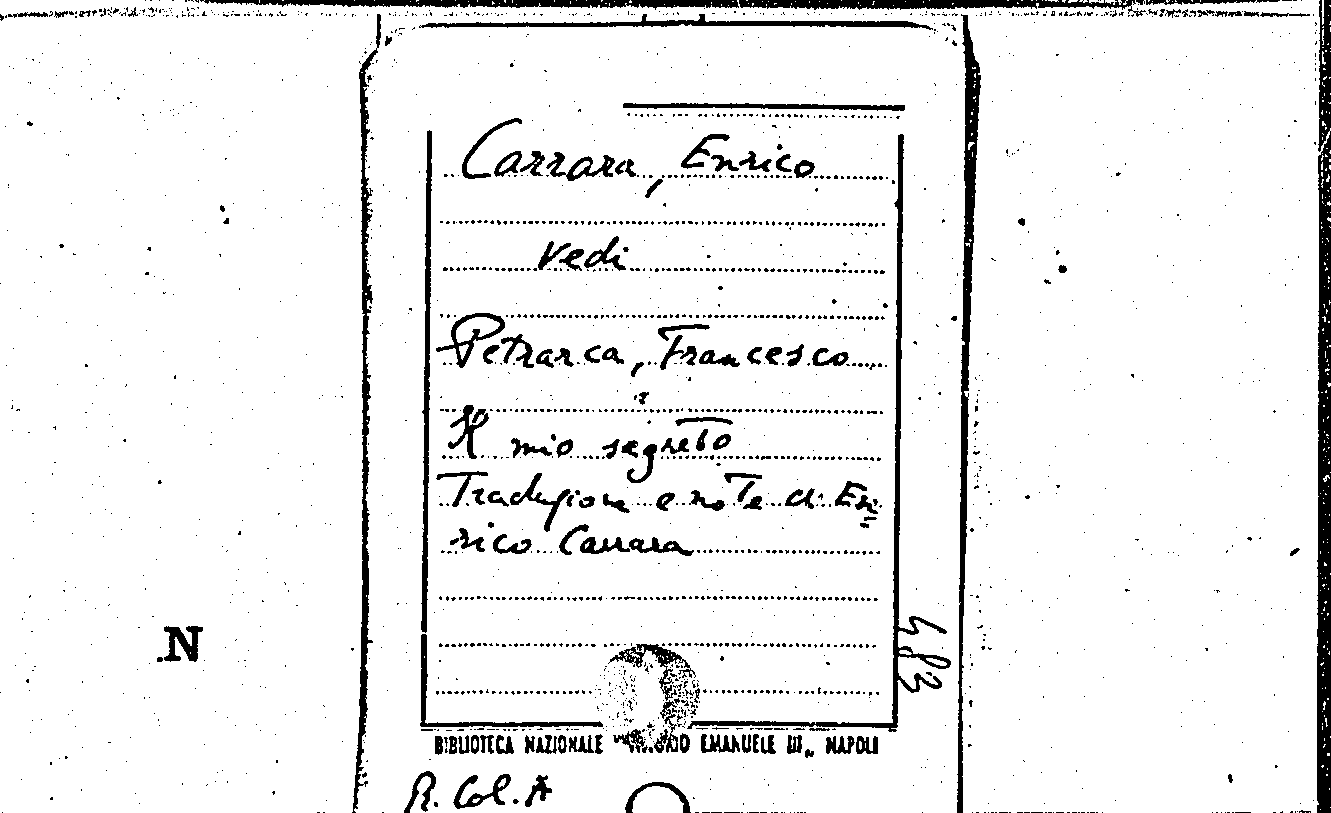 Carrara, Enrico
Vedi
Petrarca, Francesco
Il mio segreto
Traduzione e note di En=
rico Carrara
N
483
BIBLIOTECA NAZIONALE "VITTORIO EMANUELE III„ NAPOLI
R. Col. A